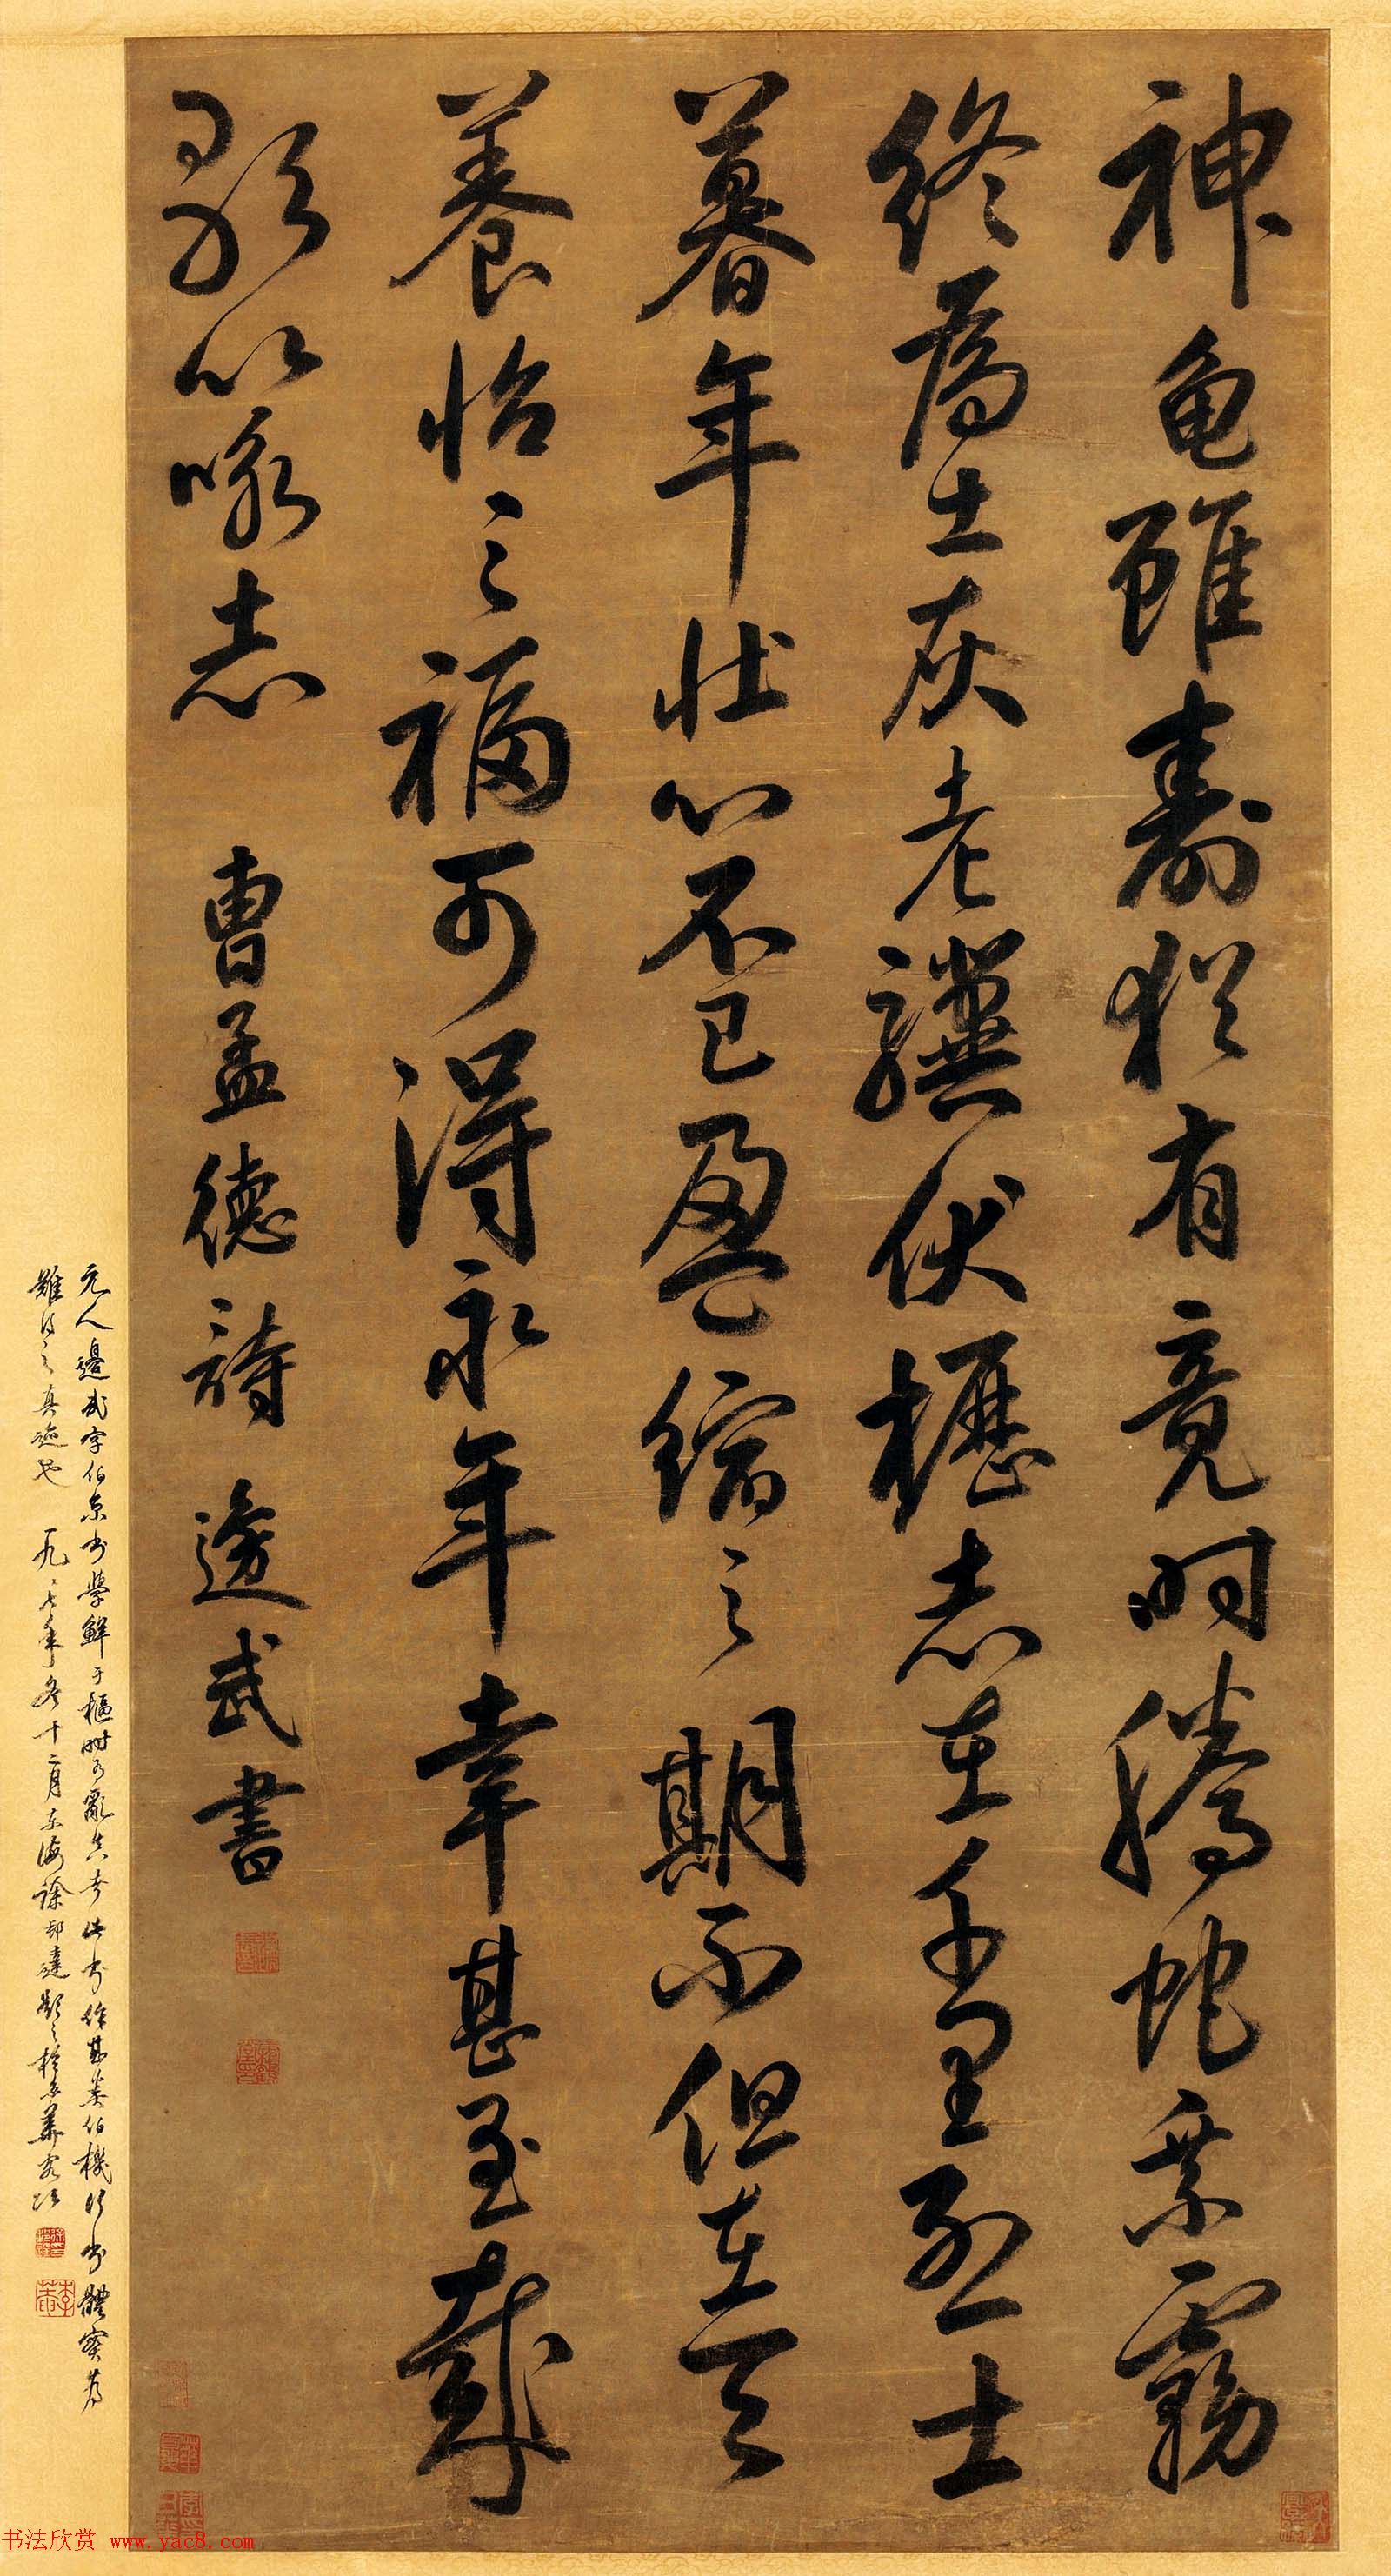 神龜雖壽猶有竟時騰蛇乘霧
終為土灰老驥伏櫪志在千里烈士
暮年壯心不已盈縮之期不但在天
養怡之福可得永年幸甚至哉
歌以詠志 曹孟德詩 邊武書
元人邊武字伯京書學鮮于樞時可亂真者此書作其葉伯機行書體實為
難得之真迹也 一九八七年冬十二月東海徐邦達題之於京華客次
书法欣赏 www.yac8.com